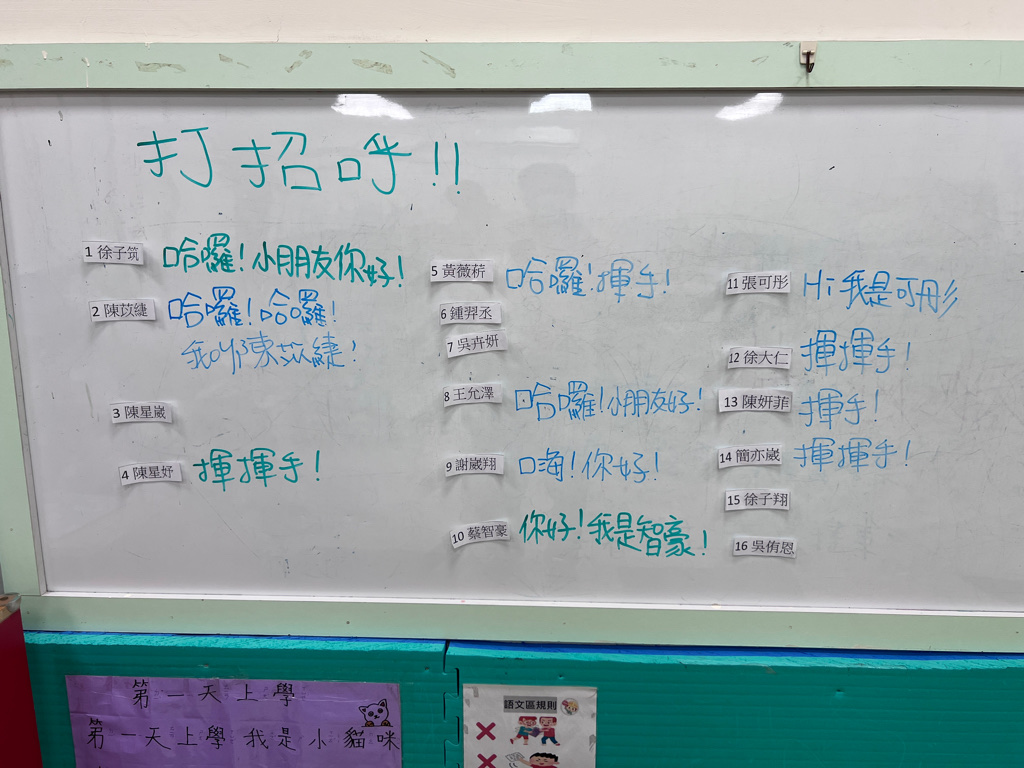 打招呼!!
1 徐子筑 哈囉!小朋友你好!
2 陳苡緁 哈囉!哈囉!
我叫陳苡緁!
3 陳星崴
4 陳星妤 揮揮手!
5 黃薇莕 哈囉!揮手!
6 鍾羿丞
7 吳卉妍
8 王允澤 哈囉!小朋友好!
9 謝崴翔 嗨!你好!
10 蔡智豪 你好!我是智豪!
11 張可彤 Hi 我是可彤
12 徐大仁 揮揮手!
13 陳妍菲 揮手!
14 簡亦崴 揮揮手!
15 徐子翔
16 吳侑恩
第一天上學
第一天上學我是小貓咪
語文區規則